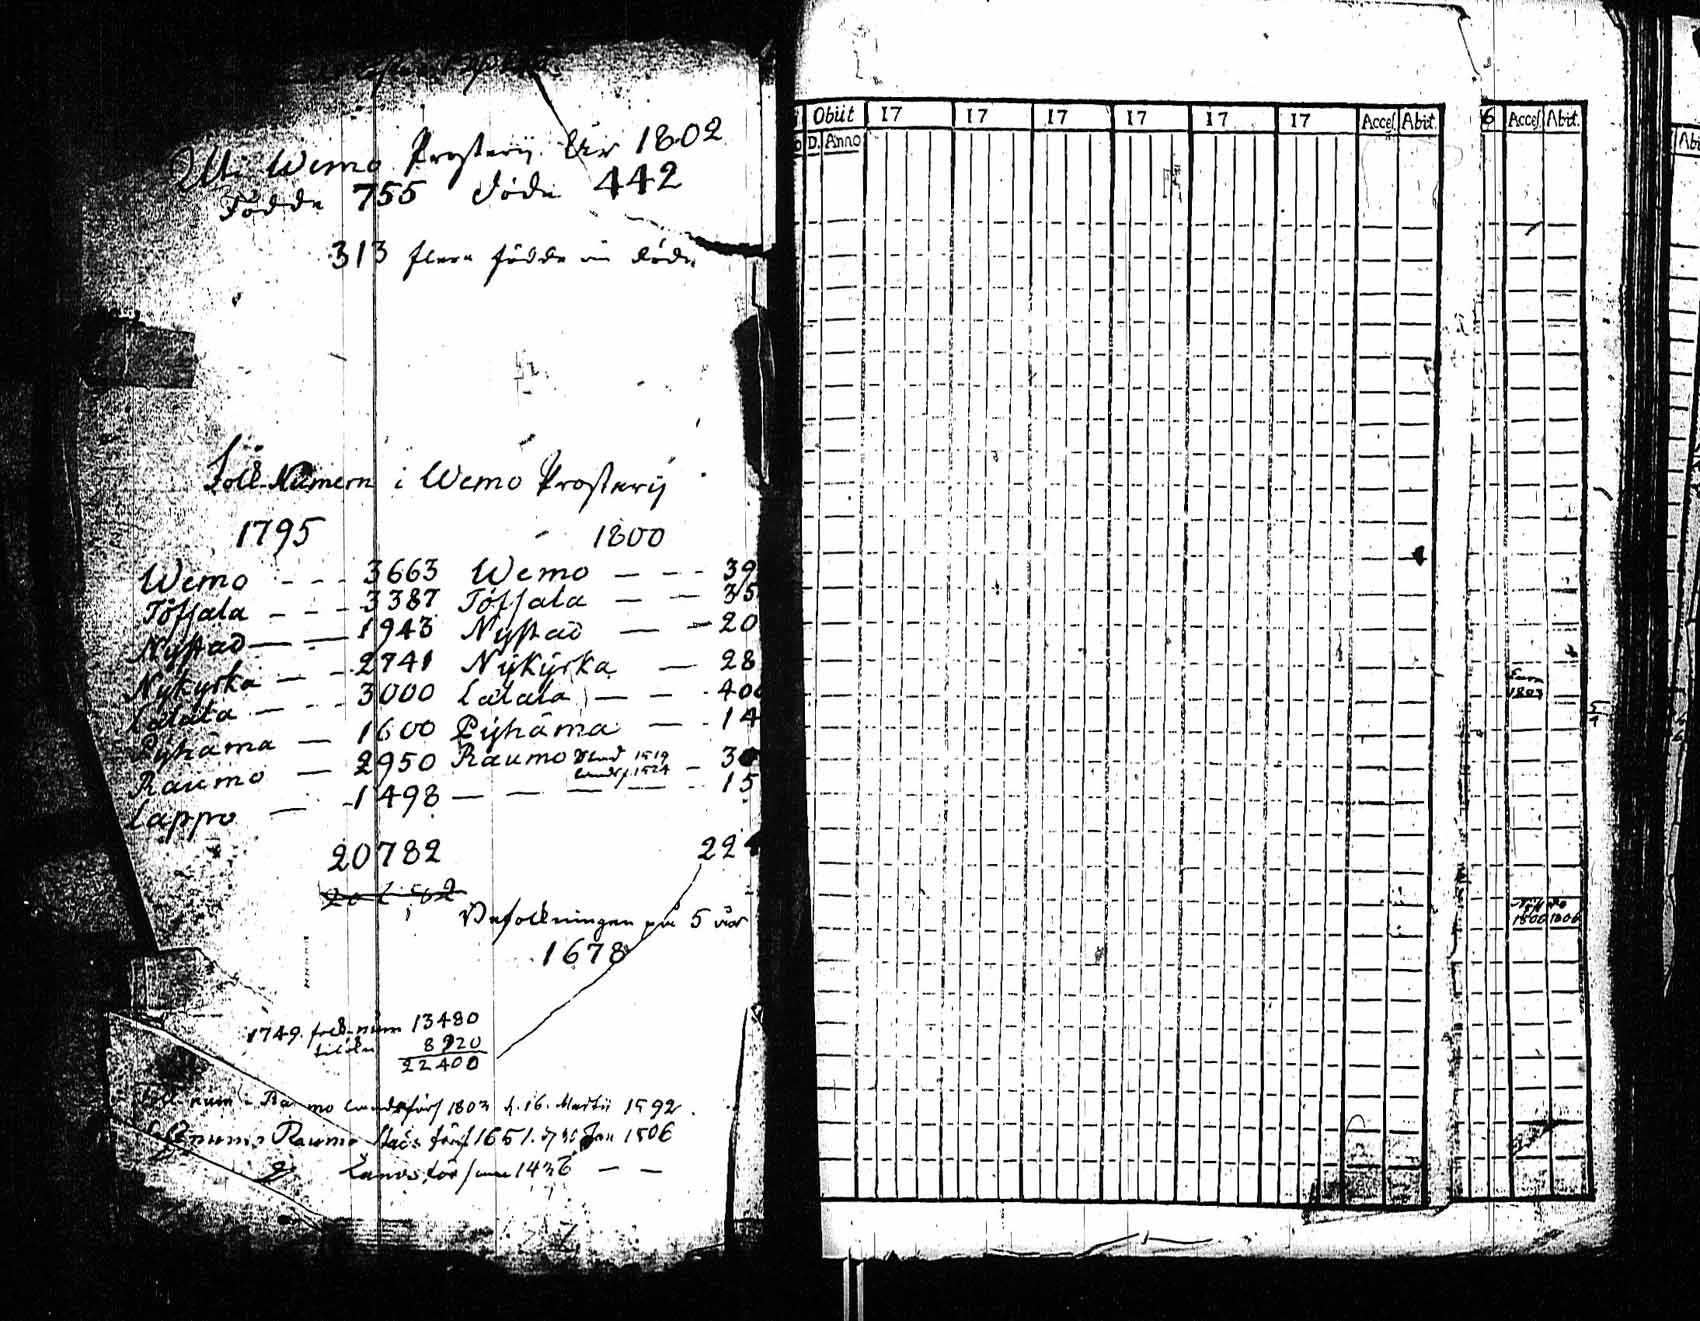 Uti Wemo Prosterij År 1802
Födde 755 döde 442
313 flera födde än döde
Folk-Numern i Wemo Prosterij
1795 1800
Wemo - - - 3663 Wemo — - - 39
Töfsala — - - 3387 Töfsala — — 35
Nystad — — 1943 Nystad — - 20
Nykyrka — - - 2741 Nykyrka — 28
Lalata — - - 3000 Lalata — — 400
Pyhäma — 1600 Pyhäma — 14
Raumo — 2950 Raumo Stad 1519 Landsf. 1524 - 30
Lappo — 1498 — — — — 15
20782 224
Befolkningen på 5 år
1678
1749. folk-num 13480
8920
22400
Folk num i Raumo Landsförs 1803 d. 16. Martii 1592.
Raumo Stads förs 1651. d 30 Jan 1506
Landsförsam 1436 — —
Obiit 17 17 17 17 17 17 Acces. Abit. 6 Acces. Abit.
D. Anno
1803
1800 1806